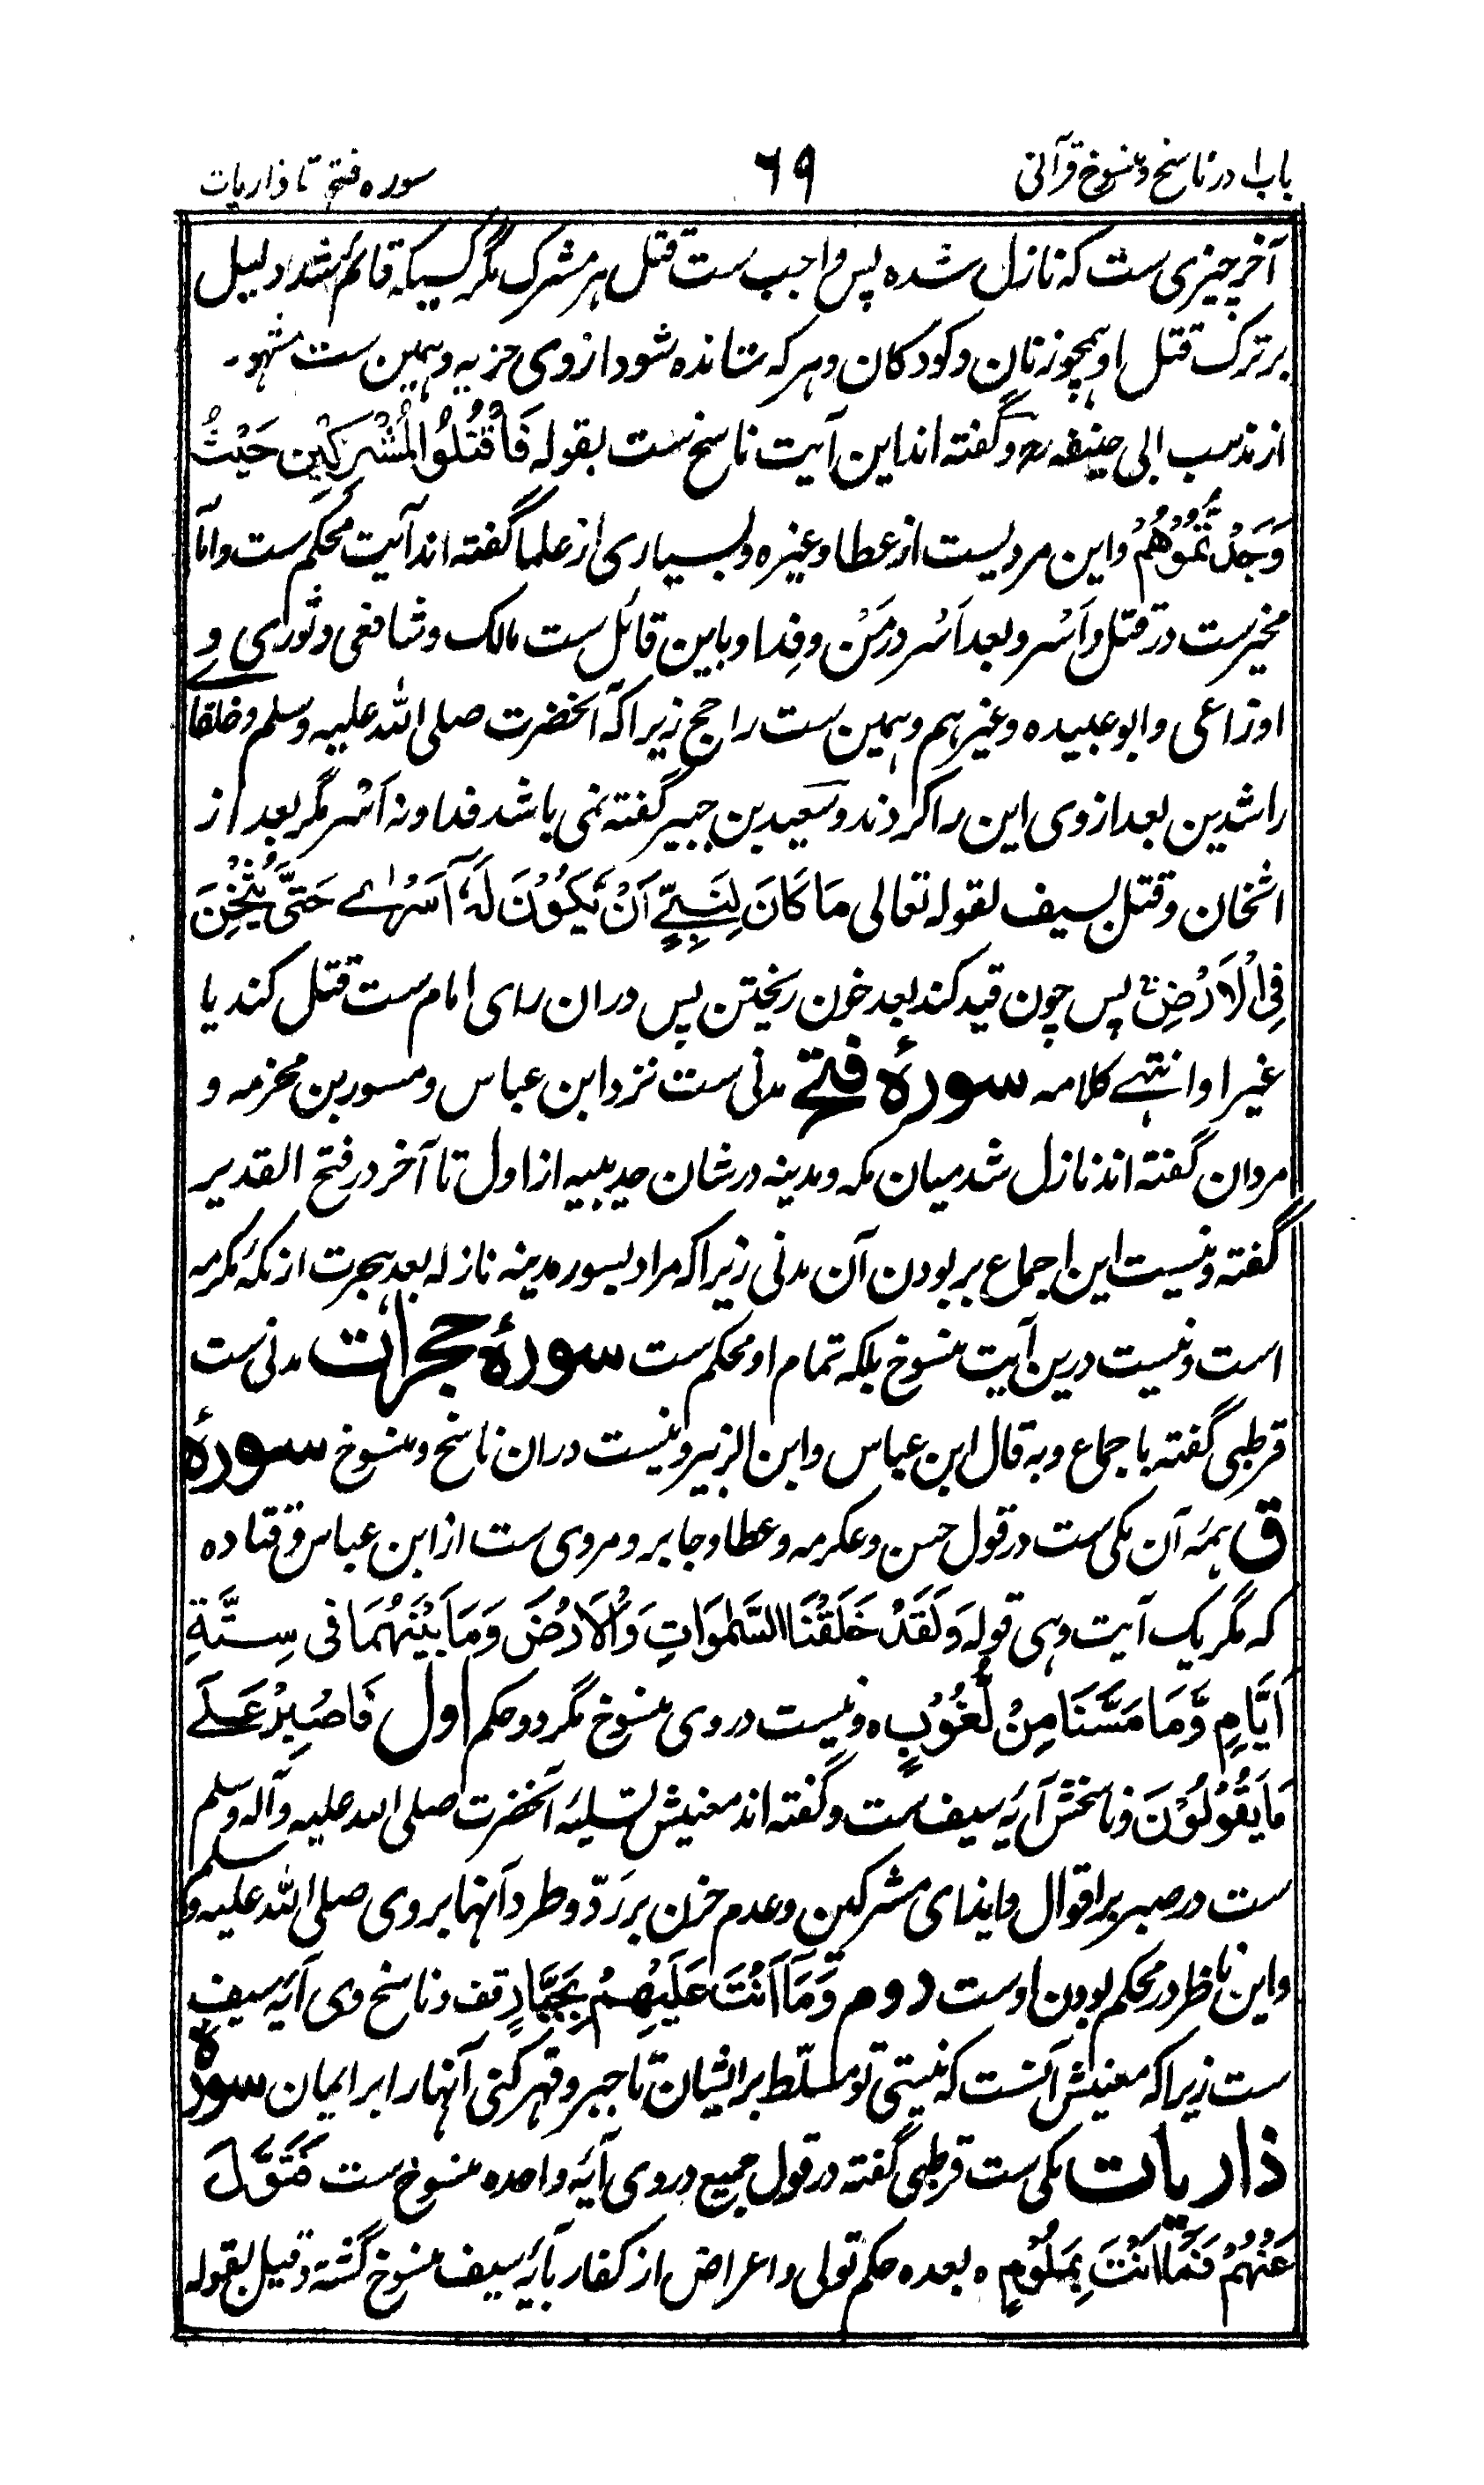 باب ۱ در ناسخ و منسوخ قرآنی ۶۹ سوره فتح تا ذاریات
آخر چیزی ست که نازل شده پس واجب ست قتل هر مشرک مگر کسیکه قائم شد دلیل
بر ترک قتل او همچو زنان و کودکان و هر که ستانده شود از وی جزیه و همین ست مشهو۔
از مذهب ابی حنیفه رح و گفته اند این آیت ناسخ ست بقوله فَاقْتُلُوا الْمُشْرِکِیْنَ حَیْثُ
وَجَدْتُّمُوْهُمْ و این مرویست از عطا و غیره و بسیاری از علما گفته اند آیت محکم ست و امام
مخیرست در قتل و اَسْر و بعد اَسْر در مَنْ و فِدا و باین قائل ست مالک و شافعی و ثوری و
اوزاعی و ابو عبیده و غیرهم و همین ست راجح زیرا که آنحضرت صلی الله علیه وسلم و خلفا
راشدین بعد از وی این را کردند و سعید بن جبیر گفته نمی باشد فدا و نه اَسْر مگر بعد از
اثخان و قتل بسیف لقوله تعالی مَا کَانَ لِنَبِیٍّ اَنْ یَّکُوْنَ لَهٗ اَسْرٰی حَتّٰی یُثْخِنَ
فِی الْاَرْضِ پس چون قید کند بعد خون ریختن پس دران رای امام ست قتل کند یا
غیر او انتهی کلامه سورهٔ فتح مدنی ست نزد ابن عباس و مسور بن مخرمه و
مروان گفته اند نازل شد میان مکه و مدینه در شان حدیبیه از اول تا آخر در فتح القدیر
گفته و نیست این اجماع بر بودن آن مدنی زیرا که مراد بسوره مدینه نازله بعد هجرت از مکهٔ مکرمه
است و نیست درین آیت منسوخ بلکه تمام او محکم ست سورهٔ حجرات مدنی ست
قرطبی گفته باجماع و به قال ابن عباس و ابن الزبیر و نیست دران ناسخ و منسوخ سورهٔ
ق همهٔ آن مکی ست در قول حسن و عکرمه و عطا و جابر و مروی ست از ابن عباس و قتاده
که مگر یک آیت وهی قوله وَلَقَدْ خَلَقْنَا السَّمٰوَاتِ وَالْاَرْضَ وَمَا بَیْنَهُمَا فِی سِتَّةِ
اَیَّامٍ وَّمَا مَسَّنَا مِنْ لُّغُوْبٍ ه و نیست در وی منسوخ مگر دو حکم اول فَاصْبِرْ عَلٰی
مَا یَقُوْلُوْنَ و ناسخش آیهٔ سیف ست و گفته اند معنیش تسلیهٔ آنحضرت صلی الله علیه و آله وسلم
ست در صبر بر اقوال و ایذای مشرکین و عدم حزن بر رَدّ و طرد آنها بر وی صلی الله علیه وسلم
و این ناظر در محکم بودن اوست دوم وَمَا اَنْتَ عَلَیْهِمْ بِجَبَّارٍ قف و ناسخ وی آیهٔ سیف
ست زیرا که معنیش آنست که نیستی تو مسلّط بر ایشان تا جبر و قهر کنی آنها را بر ایمان سورهٔ
ذاریات مکی ست قرطبی گفته در قول جمیع در وی آیهٔ واحده منسوخ ست فَتَوَلَّ
عَنْهُمْ فَمَا اَنْتَ بِمَلُوْمٍ ه بعده حکم تولی و اعراض از کفار بآیهٔ سیف منسوخ گشته و قیل بقوله